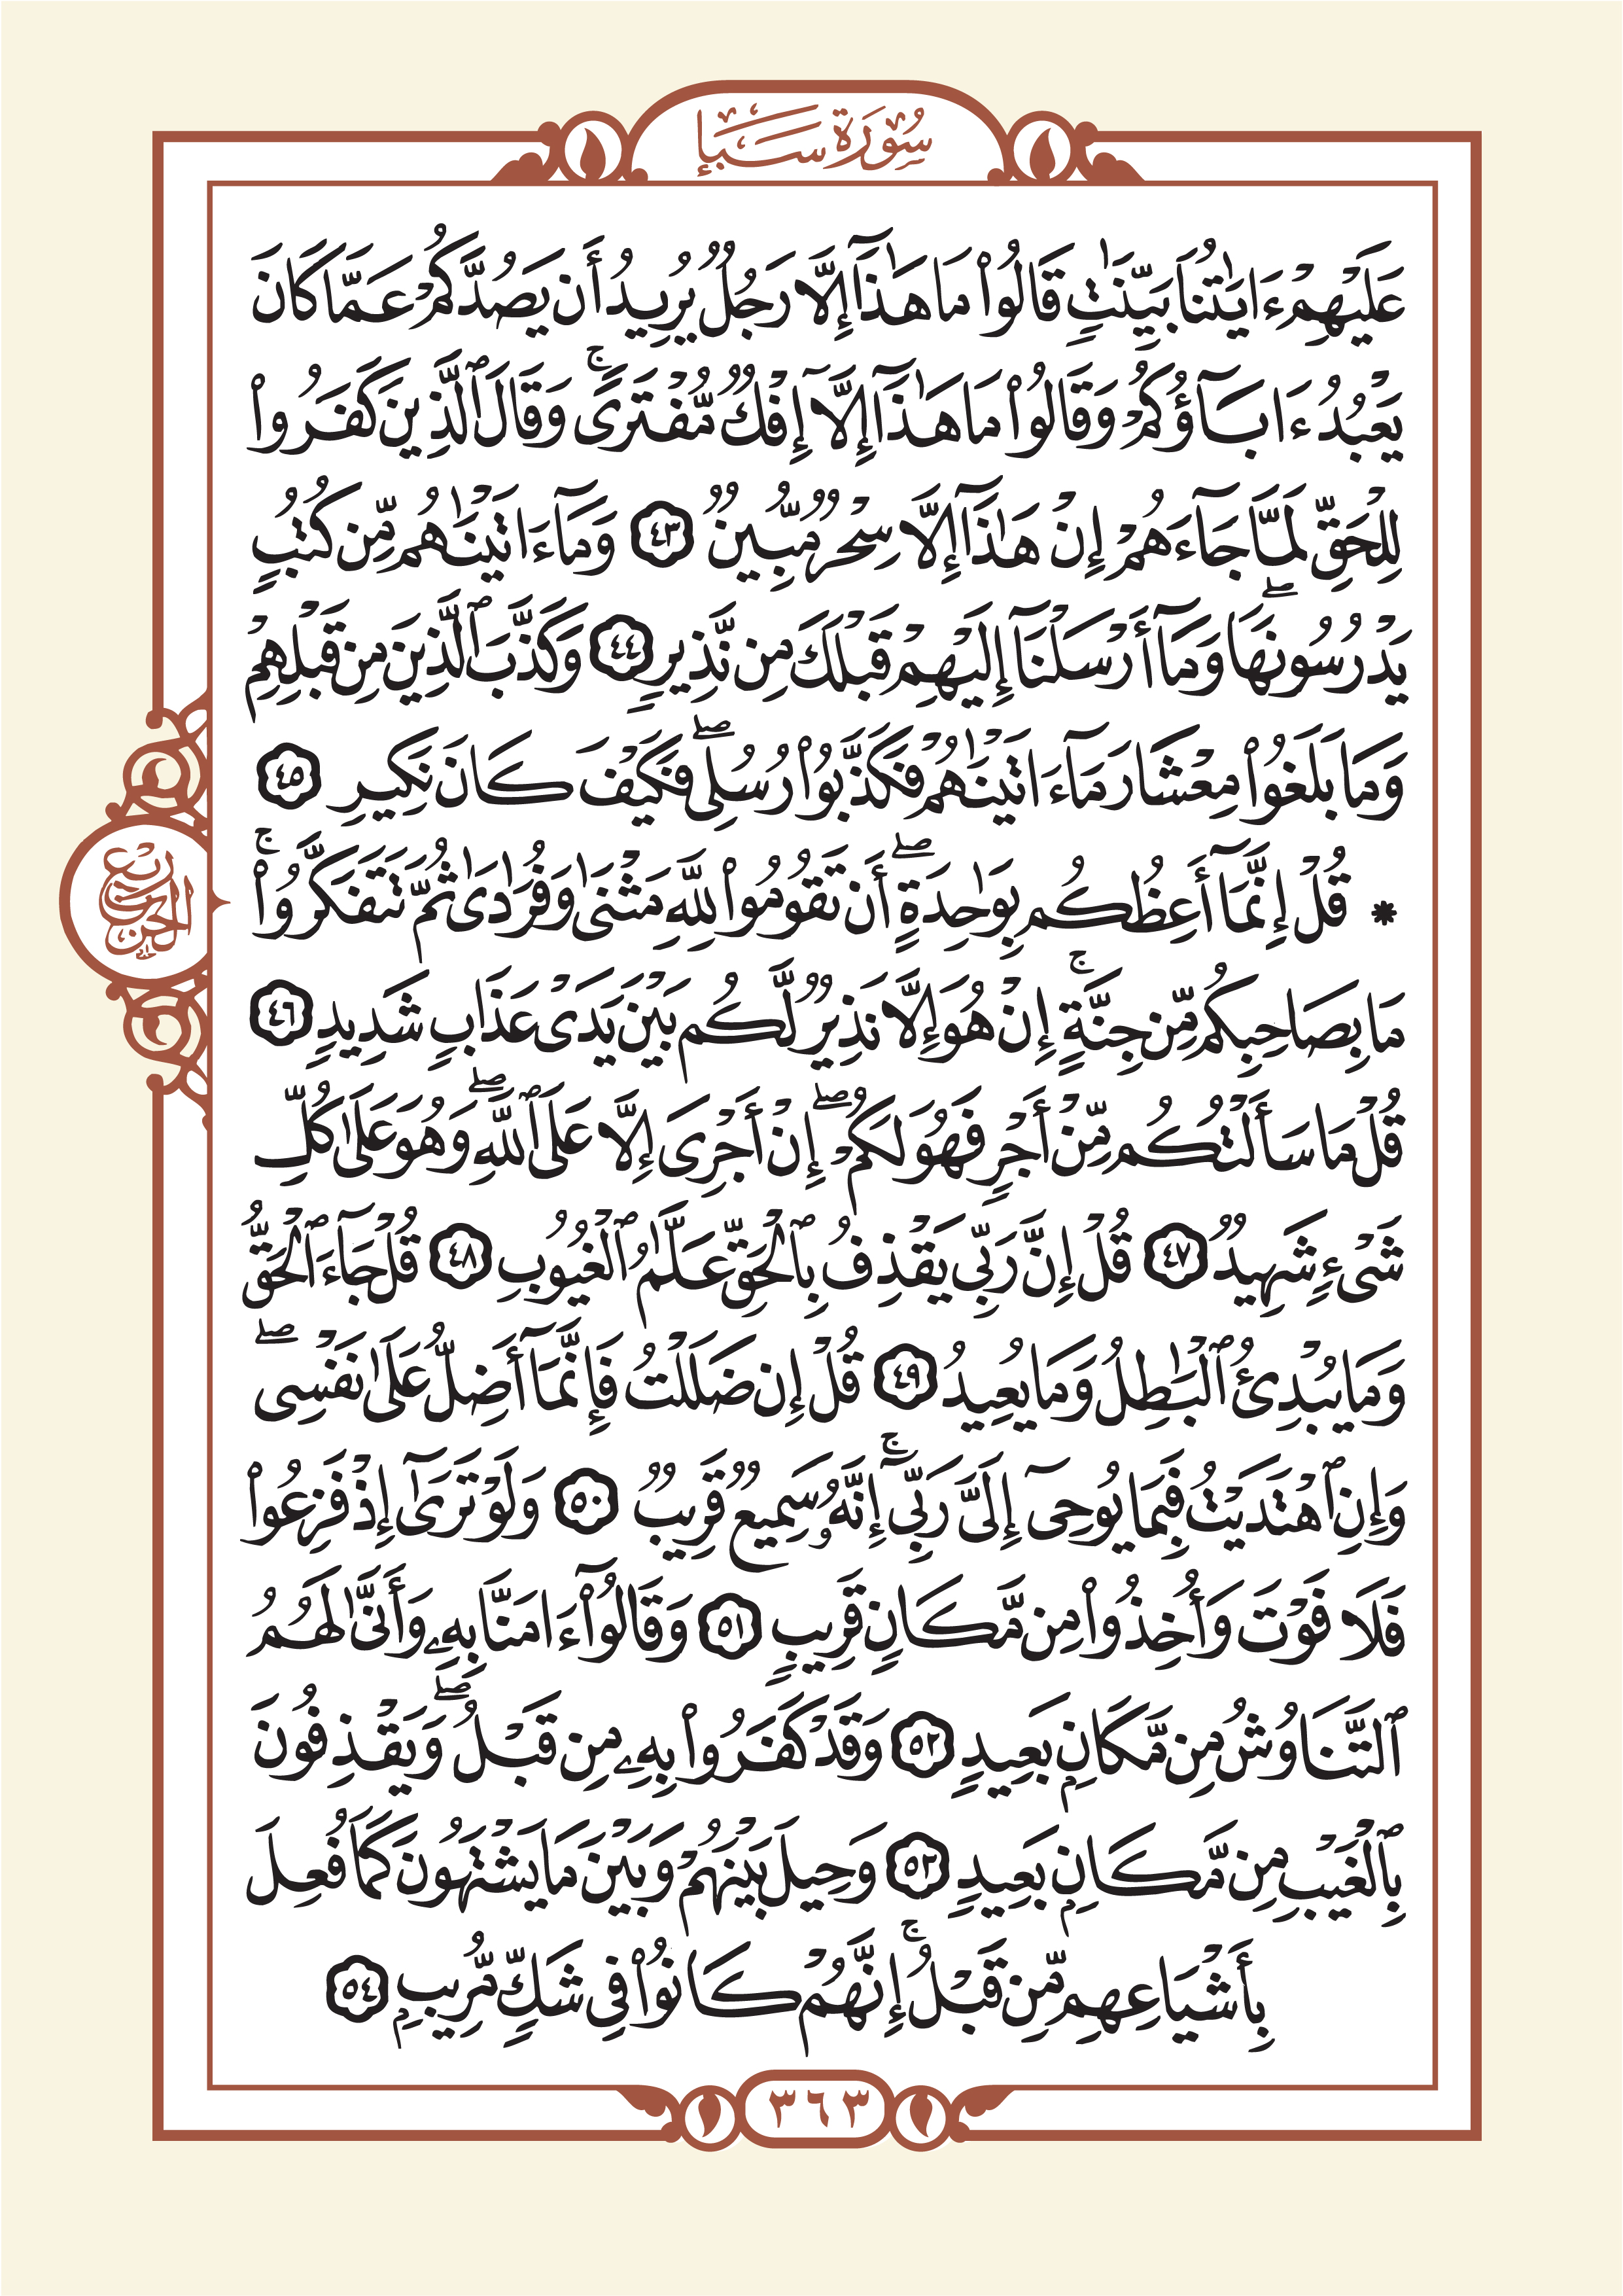 سُورَةُ سَبَإٍ
عَلَيْهِمْ ءَايَٰتُنَا بَيِّنَٰتٍ قَالُوا۟ مَا هَٰذَآ إِلَّا رَجُلٌ يُرِيدُ أَن يَصُدَّكُمْ عَمَّا كَانَ
يَعْبُدُ ءَابَآؤُكُمْ وَقَالُوا۟ مَا هَٰذَآ إِلَّآ إِفْكٌ مُّفْتَرًى ۚ وَقَالَ ٱلَّذِينَ كَفَرُوا۟
لِلْحَقِّ لَمَّا جَآءَهُمْ إِنْ هَٰذَآ إِلَّا سِحْرٌ مُّبِينٌ ٤٣ وَمَآ ءَاتَيْنَٰهُم مِّن كُتُبٍ
يَدْرُسُونَهَا ۖ وَمَآ أَرْسَلْنَآ إِلَيْهِمْ قَبْلَكَ مِن نَّذِيرٍ ٤٤ وَكَذَّبَ ٱلَّذِينَ مِن قَبْلِهِمْ
وَمَا بَلَغُوا۟ مِعْشَارَ مَآ ءَاتَيْنَٰهُمْ فَكَذَّبُوا۟ رُسُلِى ۖ فَكَيْفَ كَانَ نَكِيرِ ٤٥
* قُلْ إِنَّمَآ أَعِظُكُم بِوَٰحِدَةٍ ۖ أَن تَقُومُوا۟ لِلَّهِ مَثْنَىٰ وَفُرَٰدَىٰ ثُمَّ تَتَفَكَّرُوا۟ ۚ
رُبْعُ الحِزْب
مَا بِصَاحِبِكُم مِّن جِنَّةٍ ۚ إِنْ هُوَ إِلَّا نَذِيرٌ لَّكُم بَيْنَ يَدَىْ عَذَابٍ شَدِيدٍ ٤٦
قُلْ مَا سَأَلْتُكُم مِّنْ أَجْرٍ فَهُوَ لَكُمْ ۖ إِنْ أَجْرِىَ إِلَّا عَلَى ٱللَّهِ ۖ وَهُوَ عَلَىٰ كُلِّ
شَىْءٍ شَهِيدٌ ٤٧ قُلْ إِنَّ رَبِّى يَقْذِفُ بِٱلْحَقِّ عَلَّٰمُ ٱلْغُيُوبِ ٤٨ قُلْ جَآءَ ٱلْحَقُّ
وَمَا يُبْدِئُ ٱلْبَٰطِلُ وَمَا يُعِيدُ ٤٩ قُلْ إِن ضَلَلْتُ فَإِنَّمَآ أَضِلُّ عَلَىٰ نَفْسِى ۖ
وَإِنِ ٱهْتَدَيْتُ فَبِمَا يُوحِىٓ إِلَىَّ رَبِّىٓ ۚ إِنَّهُۥ سَمِيعٌ قَرِيبٌ ٥٠ وَلَوْ تَرَىٰٓ إِذْ فَزِعُوا۟
فَلَا فَوْتَ وَأُخِذُوا۟ مِن مَّكَانٍ قَرِيبٍ ٥١ وَقَالُوٓا۟ ءَامَنَّا بِهِۦ وَأَنَّىٰ لَهُمُ
ٱلتَّنَاوُشُ مِن مَّكَانٍۭ بَعِيدٍ ٥٢ وَقَدْ كَفَرُوا۟ بِهِۦ مِن قَبْلُ ۖ وَيَقْذِفُونَ
بِٱلْغَيْبِ مِن مَّكَانٍۭ بَعِيدٍ ٥٣ وَحِيلَ بَيْنَهُمْ وَبَيْنَ مَا يَشْتَهُونَ كَمَا فُعِلَ
بِأَشْيَاعِهِم مِّن قَبْلُ ۚ إِنَّهُمْ كَانُوا۟ فِى شَكٍّ مُّرِيبٍۭ ٥٤
٣٦٣